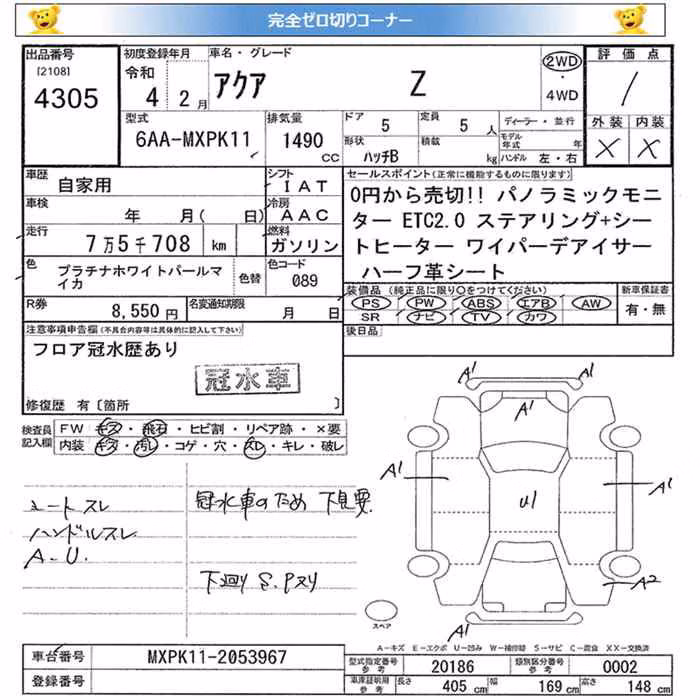 完全ゼロ切りコーナー
出品番号
[2108]
4305
初度登録年月
令和
4 2月
車名・グレード
アクア Z
2WD
・
4WD
評価点
/
外装 内装
× ×
型式
6AA-MXPK11
排気量
1490
cc
ドア 5
定員 5 人
形状
ハッチB
積載
kg
ディーラー・並行
モデル
年式 年
ハンドル 左・右
車歴
自家用
シフト
IAT
車検
年 月( 日)
冷房
AAC
走行
7万5千708 km
燃料
ガソリン
色
プラチナホワイトパールマイカ
色替
色コード
089
R券
8,550円
名変通知期限
月 日
セールスポイント(正常に機能するものに限ります)
0円から売切!! パノラミックモニ
ター ETC2.0 ステアリング+シー
トヒーター ワイパーデアイサー
ハーフ革シート
装備品(純正品に限り〇をつけてください)
PS PW ABS エアB AW
SR ナビ TV カワ
新車保証書
有・無
後日品
注意事項申告欄(不具合内容等は具体的に記入して下さい)
フロア冠水歴あり
冠水車
修復歴 有〔箇所 〕
検査員
記入欄
FW キズ・飛石・ヒビ割・リペア跡・×要
内装 キズ・汚レ・コゲ・穴・スレ・キレ・破レ
シートスレ
ハンドルスレ
A-U.
冠水車のため 下見要.
下廻り S.Pヌリ
A1
A1
A1
A1
A1
U1
A2
A1
スペア
A-キズ E-エクボ U-凹み W-補修跡 S-サビ C-腐食 XX-交換済
車台番号
MXPK11-2053967
登録番号
型式指定番号
参考
20186
類別区分番号
参考
0002
車庫証明用
参考
長さ 405 cm
幅 169 cm
高さ 148 cm